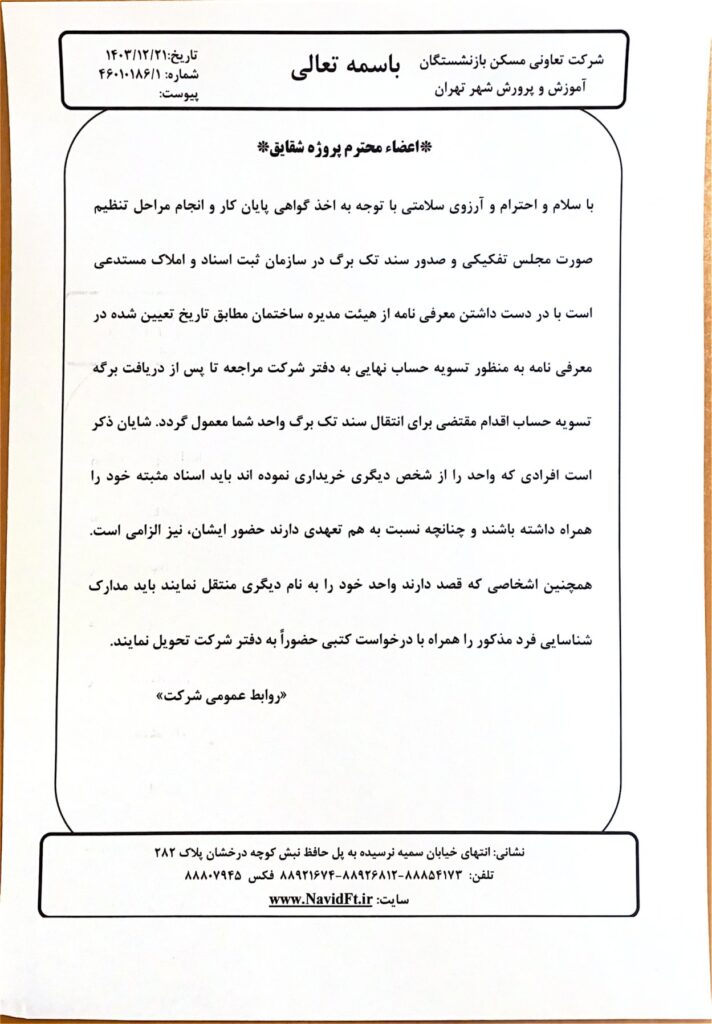 شرکت تعاونی مسکن بازنشستگان
آموزش و پرورش شهر تهران
باسمه تعالی
تاریخ:۱۴۰۳/۱۲/۲۱
شماره: ۴۶۰۱۰۱۸۶/۱
پیوست:
*اعضاء محترم پروژه شقایق*
با سلام و احترام و آرزوی سلامتی با توجه به اخذ گواهی پایان کار و انجام مراحل تنظیم
صورت مجلس تفکیکی و صدور سند تک برگ در سازمان ثبت اسناد و املاک مستدعی
است با در دست داشتن معرفی نامه از هیئت مدیره ساختمان مطابق تاریخ تعیین شده در
معرفی نامه به منظور تسویه حساب نهایی به دفتر شرکت مراجعه تا پس از دریافت برگه
تسویه حساب اقدام مقتضی برای انتقال سند تک برگ واحد شما معمول گردد. شایان ذکر
است افرادی که واحد را از شخص دیگری خریداری نموده اند باید اسناد مثبته خود را
همراه داشته باشند و چنانچه نسبت به هم تعهدی دارند حضور ایشان، نیز الزامی است.
همچنین اشخاصی که قصد دارند واحد خود را به نام دیگری منتقل نمایند باید مدارک
شناسایی فرد مذکور را همراه با درخواست کتبی حضوراً به دفتر شرکت تحویل نمایند.
«روابط عمومی شرکت»
نشانی: انتهای خیابان سمیه نرسیده به پل حافظ نبش کوچه درخشان پلاک ۲۸۲
تلفن: ۸۸۸۵۴۱۷۳-۸۸۹۲۶۸۱۲-۸۸۹۲۱۶۷۴ فکس ۸۸۸۰۷۹۴۵
سایت: www.NavidFt.ir